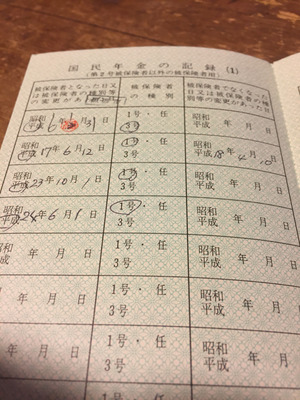 国民年金の記録(1)
(第2号被保険者以外の被保険者用)
被保険者となった日又は被保険者の種別等の変更があった日
被保険者の種別
被保険者でなくなった日又は被保険者の種別等の変更があった日
昭和 平成 6年 1月 31日
1号・任 3号
昭和 平成 年 月
昭和 平成 17年 6月 12日
1号・任 3号
昭和 平成 18年 4月 10日
昭和 平成 23年 10月 1日
1号・任 3号
昭和 平成 年 月
昭和 平成 24年 6月 1日
1号・任 3号
昭和 平成 年 月
昭和 平成 年 月 日
1号・任 3号
昭和 平成 年 月
昭和 平成 年 月 日
1号・任 3号
昭和 平成 年 月
昭和 平成 年 月 日
1号・任 3号
昭和 平成 年 月